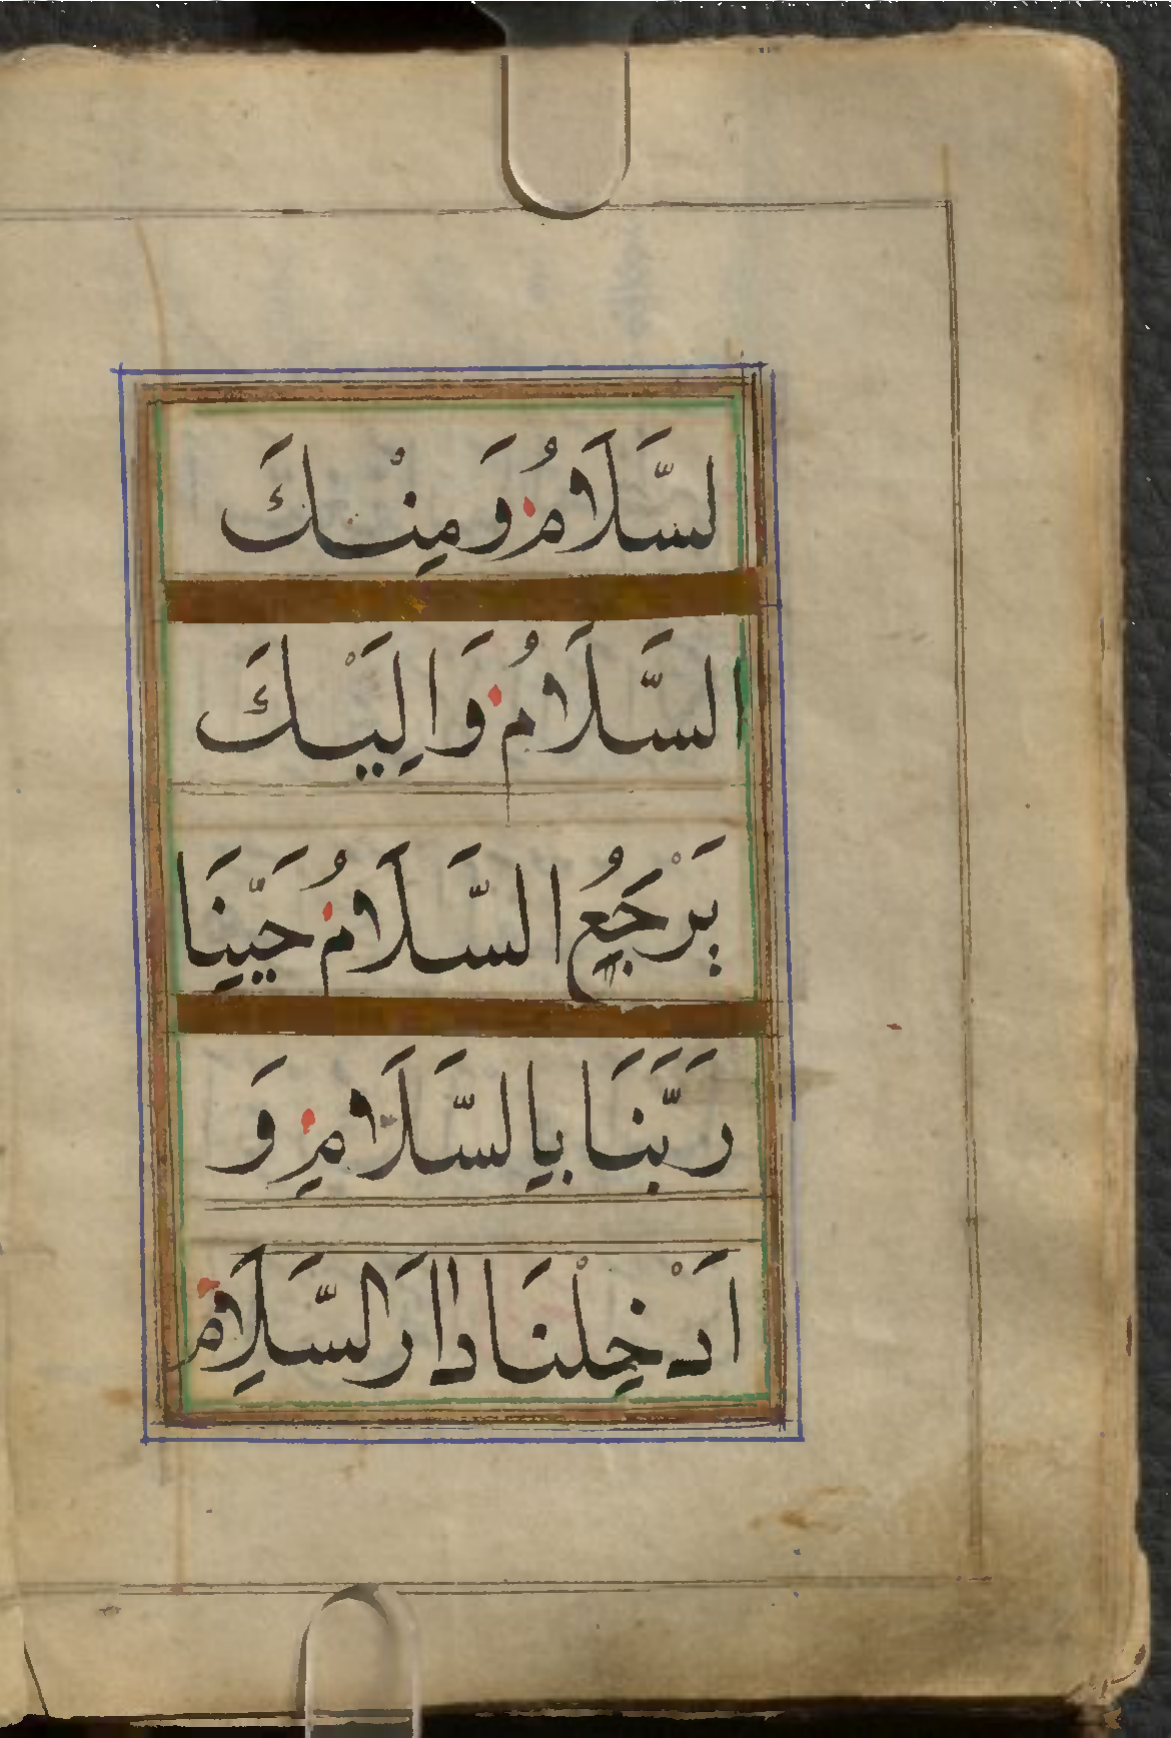 لسَّلَامُ وَمِنْكَ
السَّلَامُ وَاِلَيْكَ
يَرْجَعُ السَّلَامُ حَيِّنَا
رَبَّنَا بِاالسَّلَامِ وَ
اَدْخِلْنَا دَاارَالسَّلَامِ